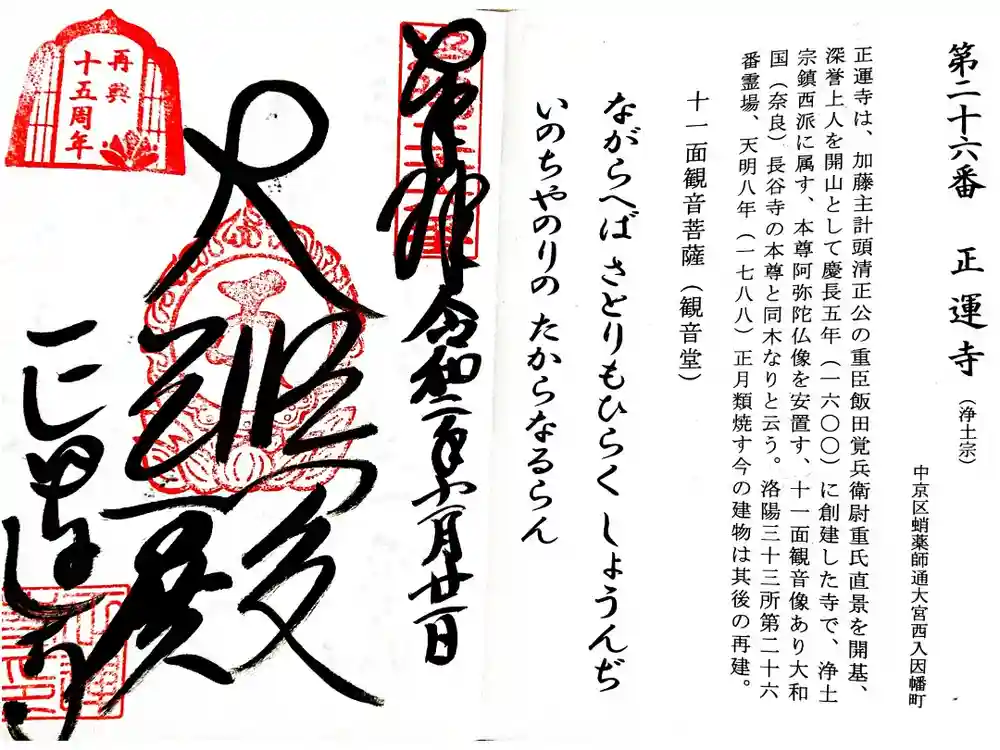 第二十六番 正運寺 (浄土宗)
中京区蛸薬師通大宮西入因幡町
正運寺は、加藤主計頭清正公の重臣飯田覚兵衛尉重氏直景を開基、
深誉上人を開山として慶長五年(一六〇〇)に創建した寺で、浄土
宗鎮西派に属す、本尊阿弥陀仏像を安置す、十一面観音像あり大和
国(奈良)長谷寺の本尊と同木なりと云う。洛陽三十三所第二十六
番霊場、天明八年(一七八八)正月類焼す今の建物は其後の再建。
十一面観音菩薩(観音堂)
ながらへば さとりもひらく しょうんぢ
いのちやのりの たからなるらん
奉拝 令和二年
月廿一日
大悲殿
正運寺
再興
十五周年